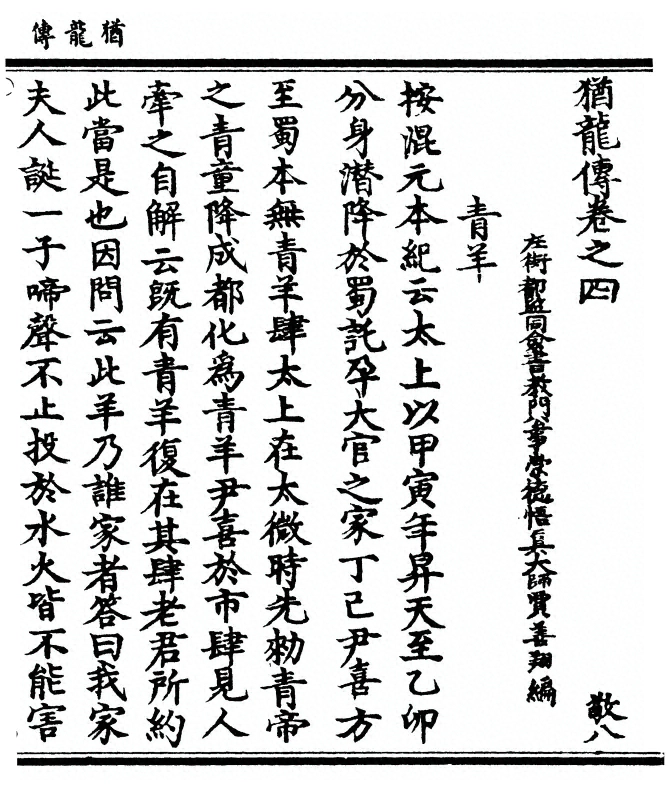 猶龍傳
猶龍傳卷之四
敬八
左街都監同僉書教門事崇德悟真大師賈善翔編
青羊
按混元本紀云太上以甲寅年昇天至乙卯
分身潜降於蜀託孕大官之家丁已尹喜方
至蜀本無青羊肆太上在太微時先勑青帝
之青童降成都化爲青羊尹喜於市肆見人
牽之自解云旣有青羊復在其肆老君所約
此當是也因問云此羊乃誰家者答曰我家
夫人誕一子啼聲不止投於水火皆不能害